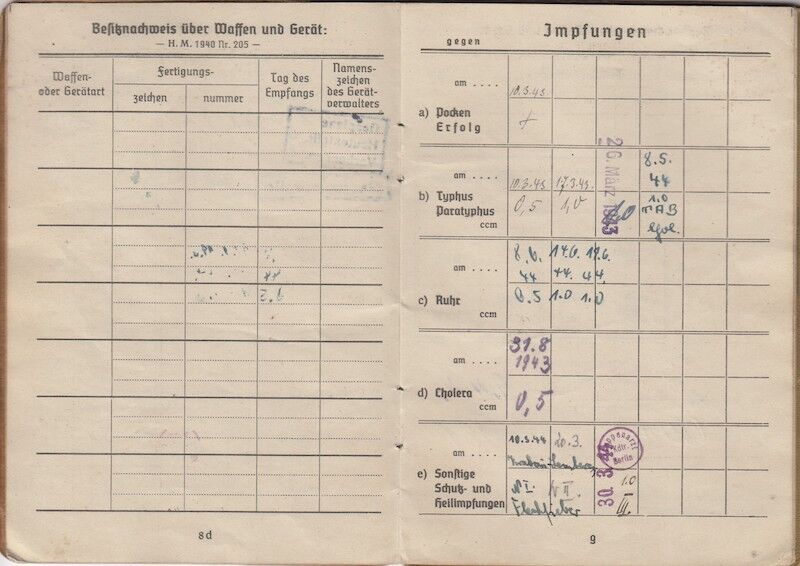 Besitznachweis über Waffen und Gerät:
— H. M. 1940 Nr. 205 —
Waffen-
oder Gerätart
Fertigungs-
zeichen
nummer
Tag des
Empfangs
Namens-
zeichen
des Gerät-
verwalters
8d
Impfungen
gegen
am ....
10.3.43
a) Pocken
Erfolg
+
am ....
10.3.43 17.3.43. 26. März 1943 8.5.
44
b) Typhus
Paratyphus
ccm
0,5 1,0 1,0 1.0
TAB
am ....
8.6. 14.6. 19.6.
44 44. 44.
c) Ruhr
ccm
0.5 1.0 1.0
am ....
31.8
1943
d) Cholera
ccm
0,5
am ....
10.3.44 20.3. 30. 3. 44
Truppenarzt
Kdtr.
Berlin
e) Sonstige
Schutz- und
Heilimpfungen
N I. N II. 1.0
III.
Fleckfieber
9